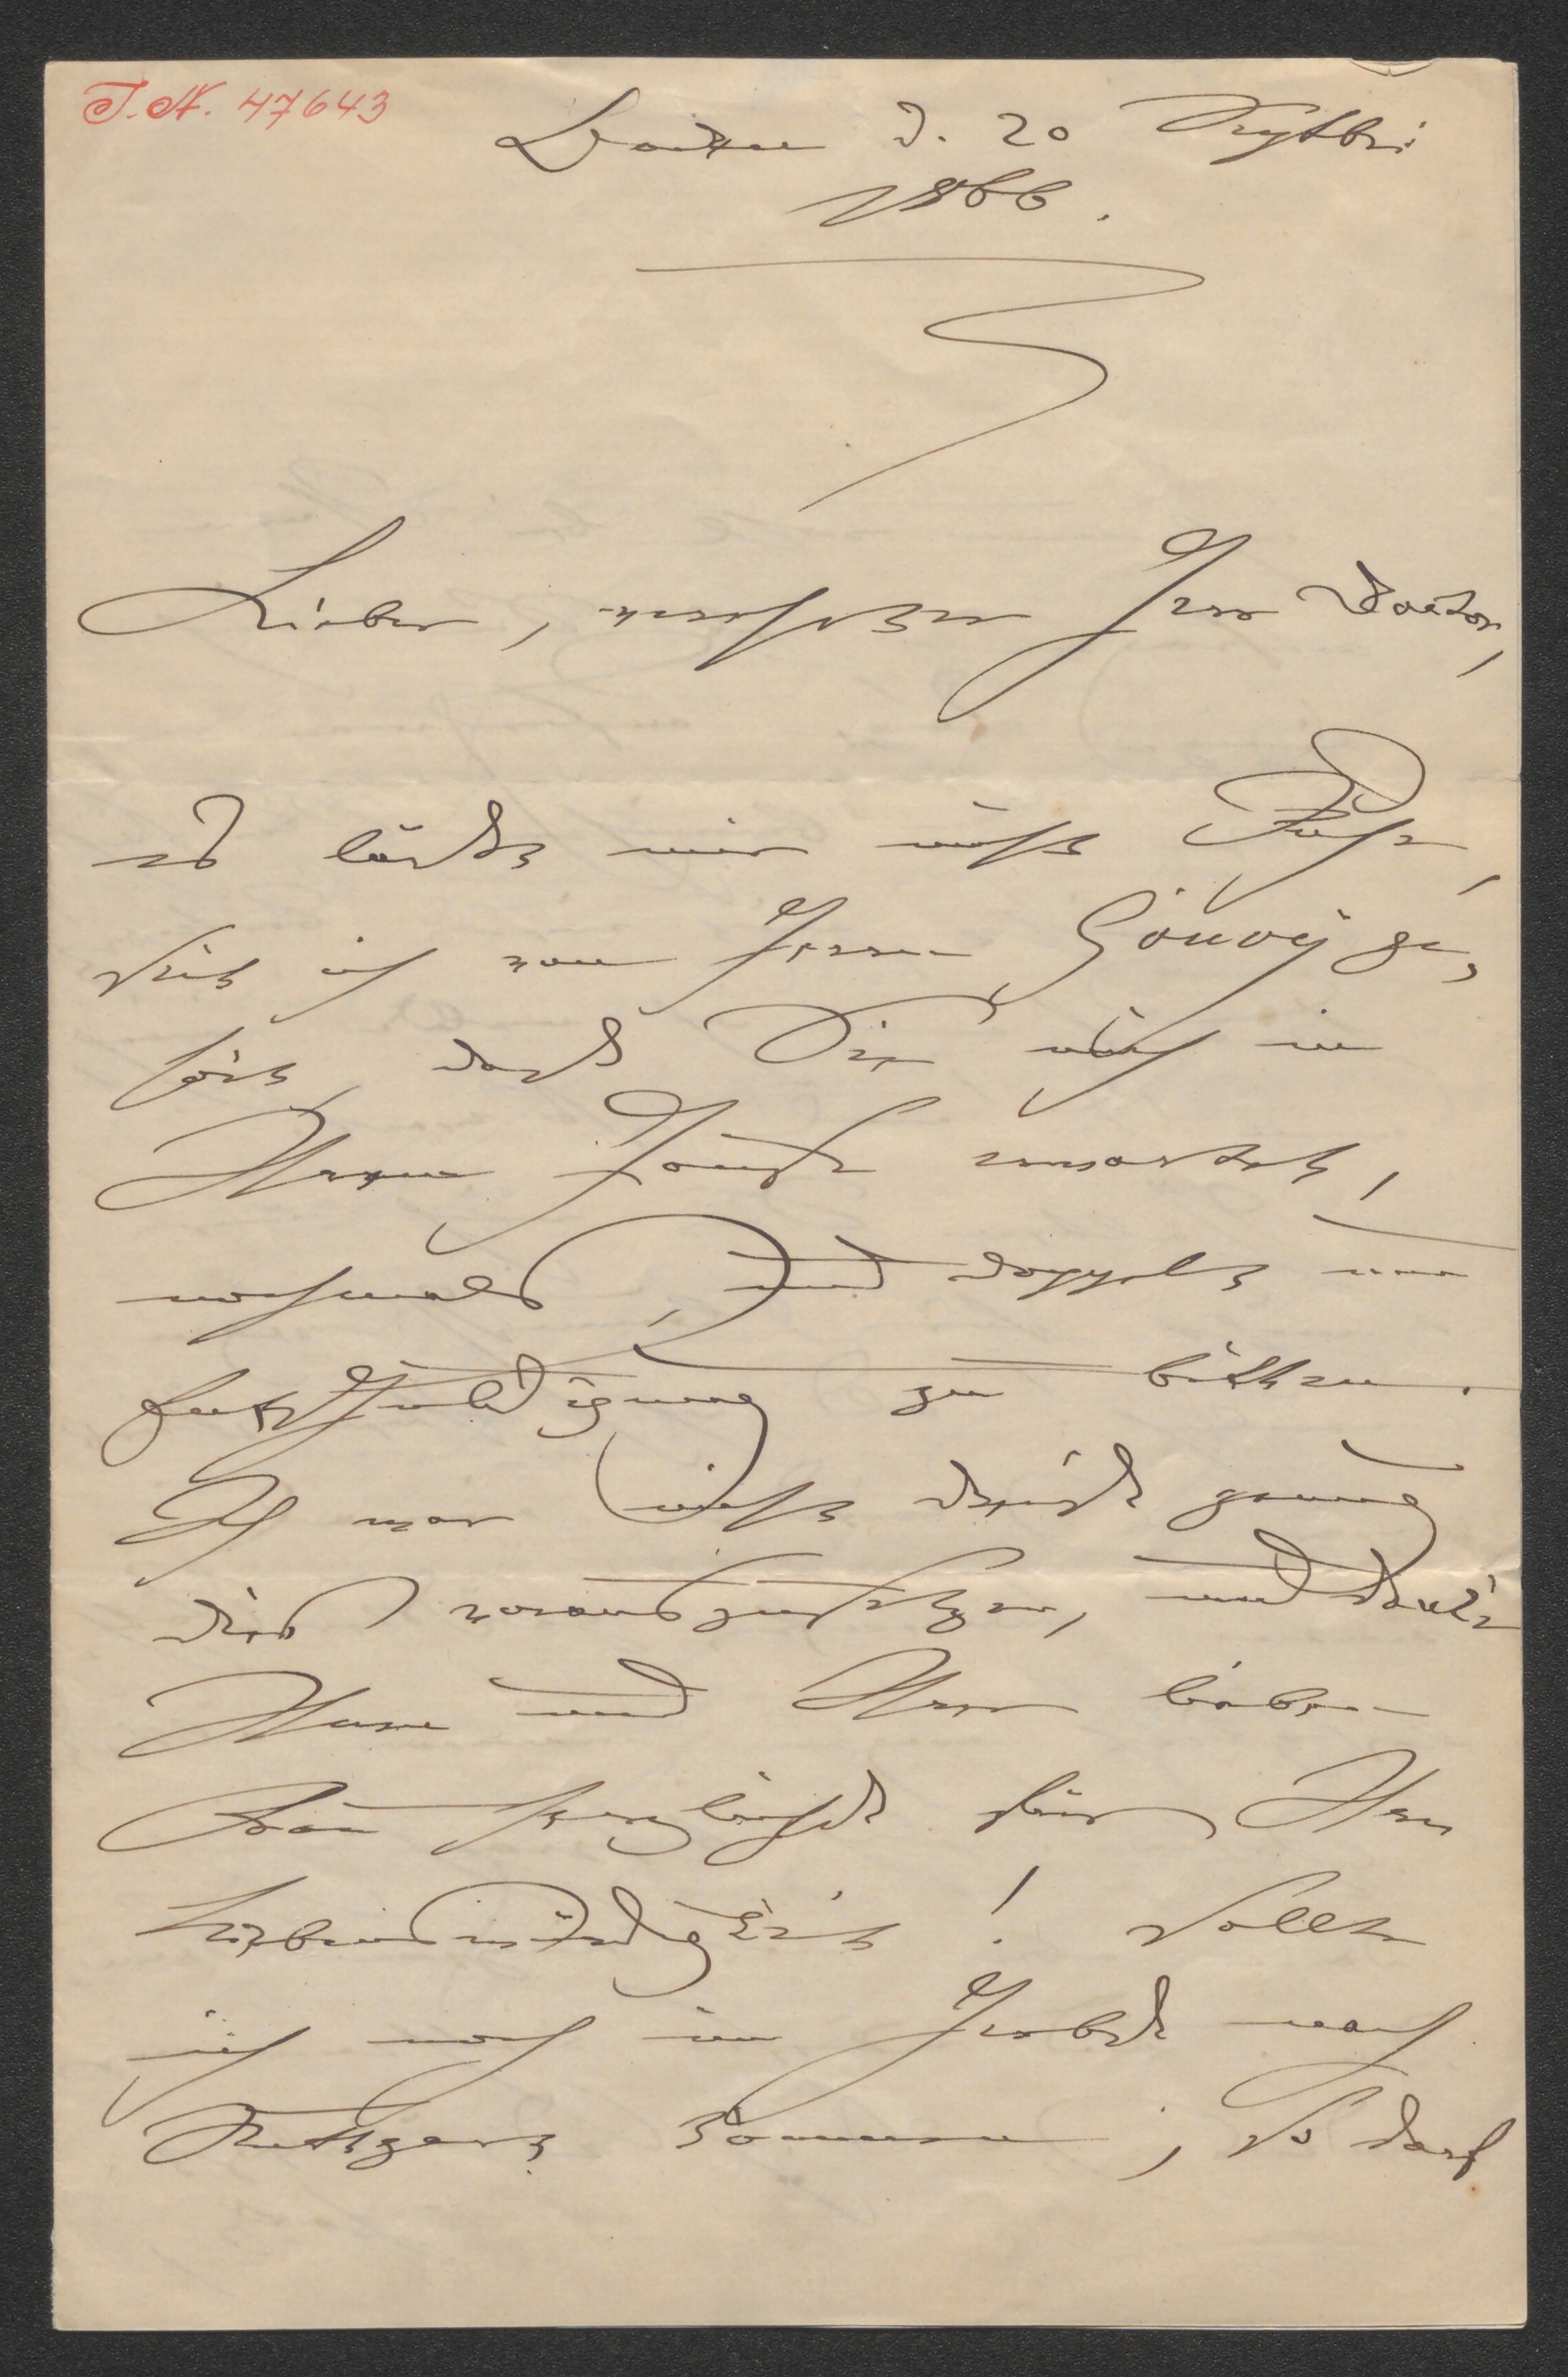 I.N. 47643
Baden d. 20 Septbr:
1866.
Lieber, verehrter Herr Doctor,
es läßt mir nicht Ruhe,
seit ich von Herrn Gouvÿ ge-
hört, daß Sie mich in
Ihrem Hause erwartet,
nochmals und doppelt um
Entschuldigung zu bitten.
Ich war nicht dreist genug
dies vorauszusetzen, und danke
Ihnen und Ihrer lieben
Frau herzlichst für Ihre
Liebenswürdigkeit! Sollte
ich noch im Herbst nach
Stuttgart kommen, so darf